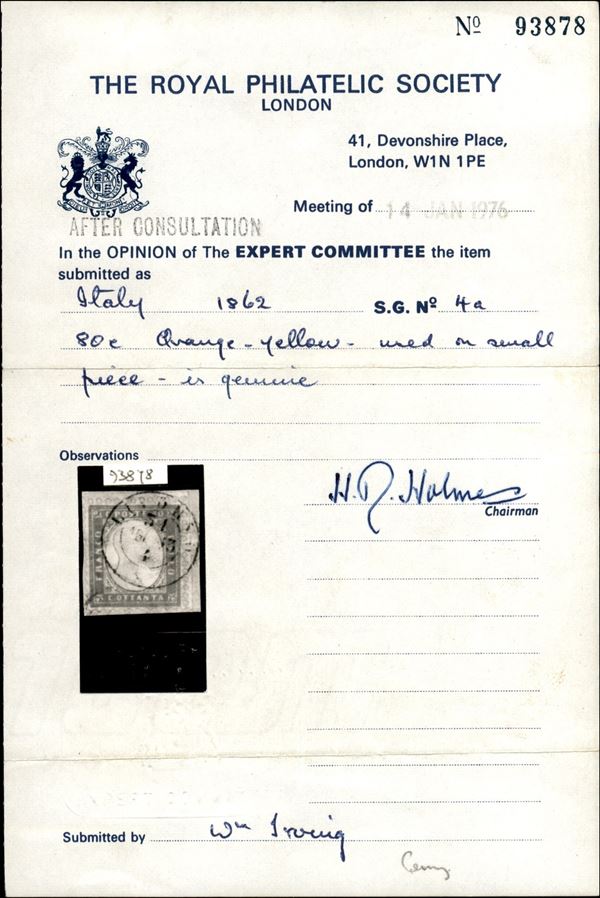 Nº 93878
THE ROYAL PHILATELIC SOCIETY
LONDON
41, Devonshire Place,
London, W1N 1PE
Meeting of 14 JAN 1976
AFTER CONSULTATION
In the OPINION of The EXPERT COMMITTEE the item
submitted as
Italy 1862 S.G. Nº 4a
80c Orange-yellow - used on small
piece - is genuine
Observations
93878
H.R. Holmes
Chairman
FRANCO
C. POSTE
C. OTTANTA
Submitted by Wm Irving